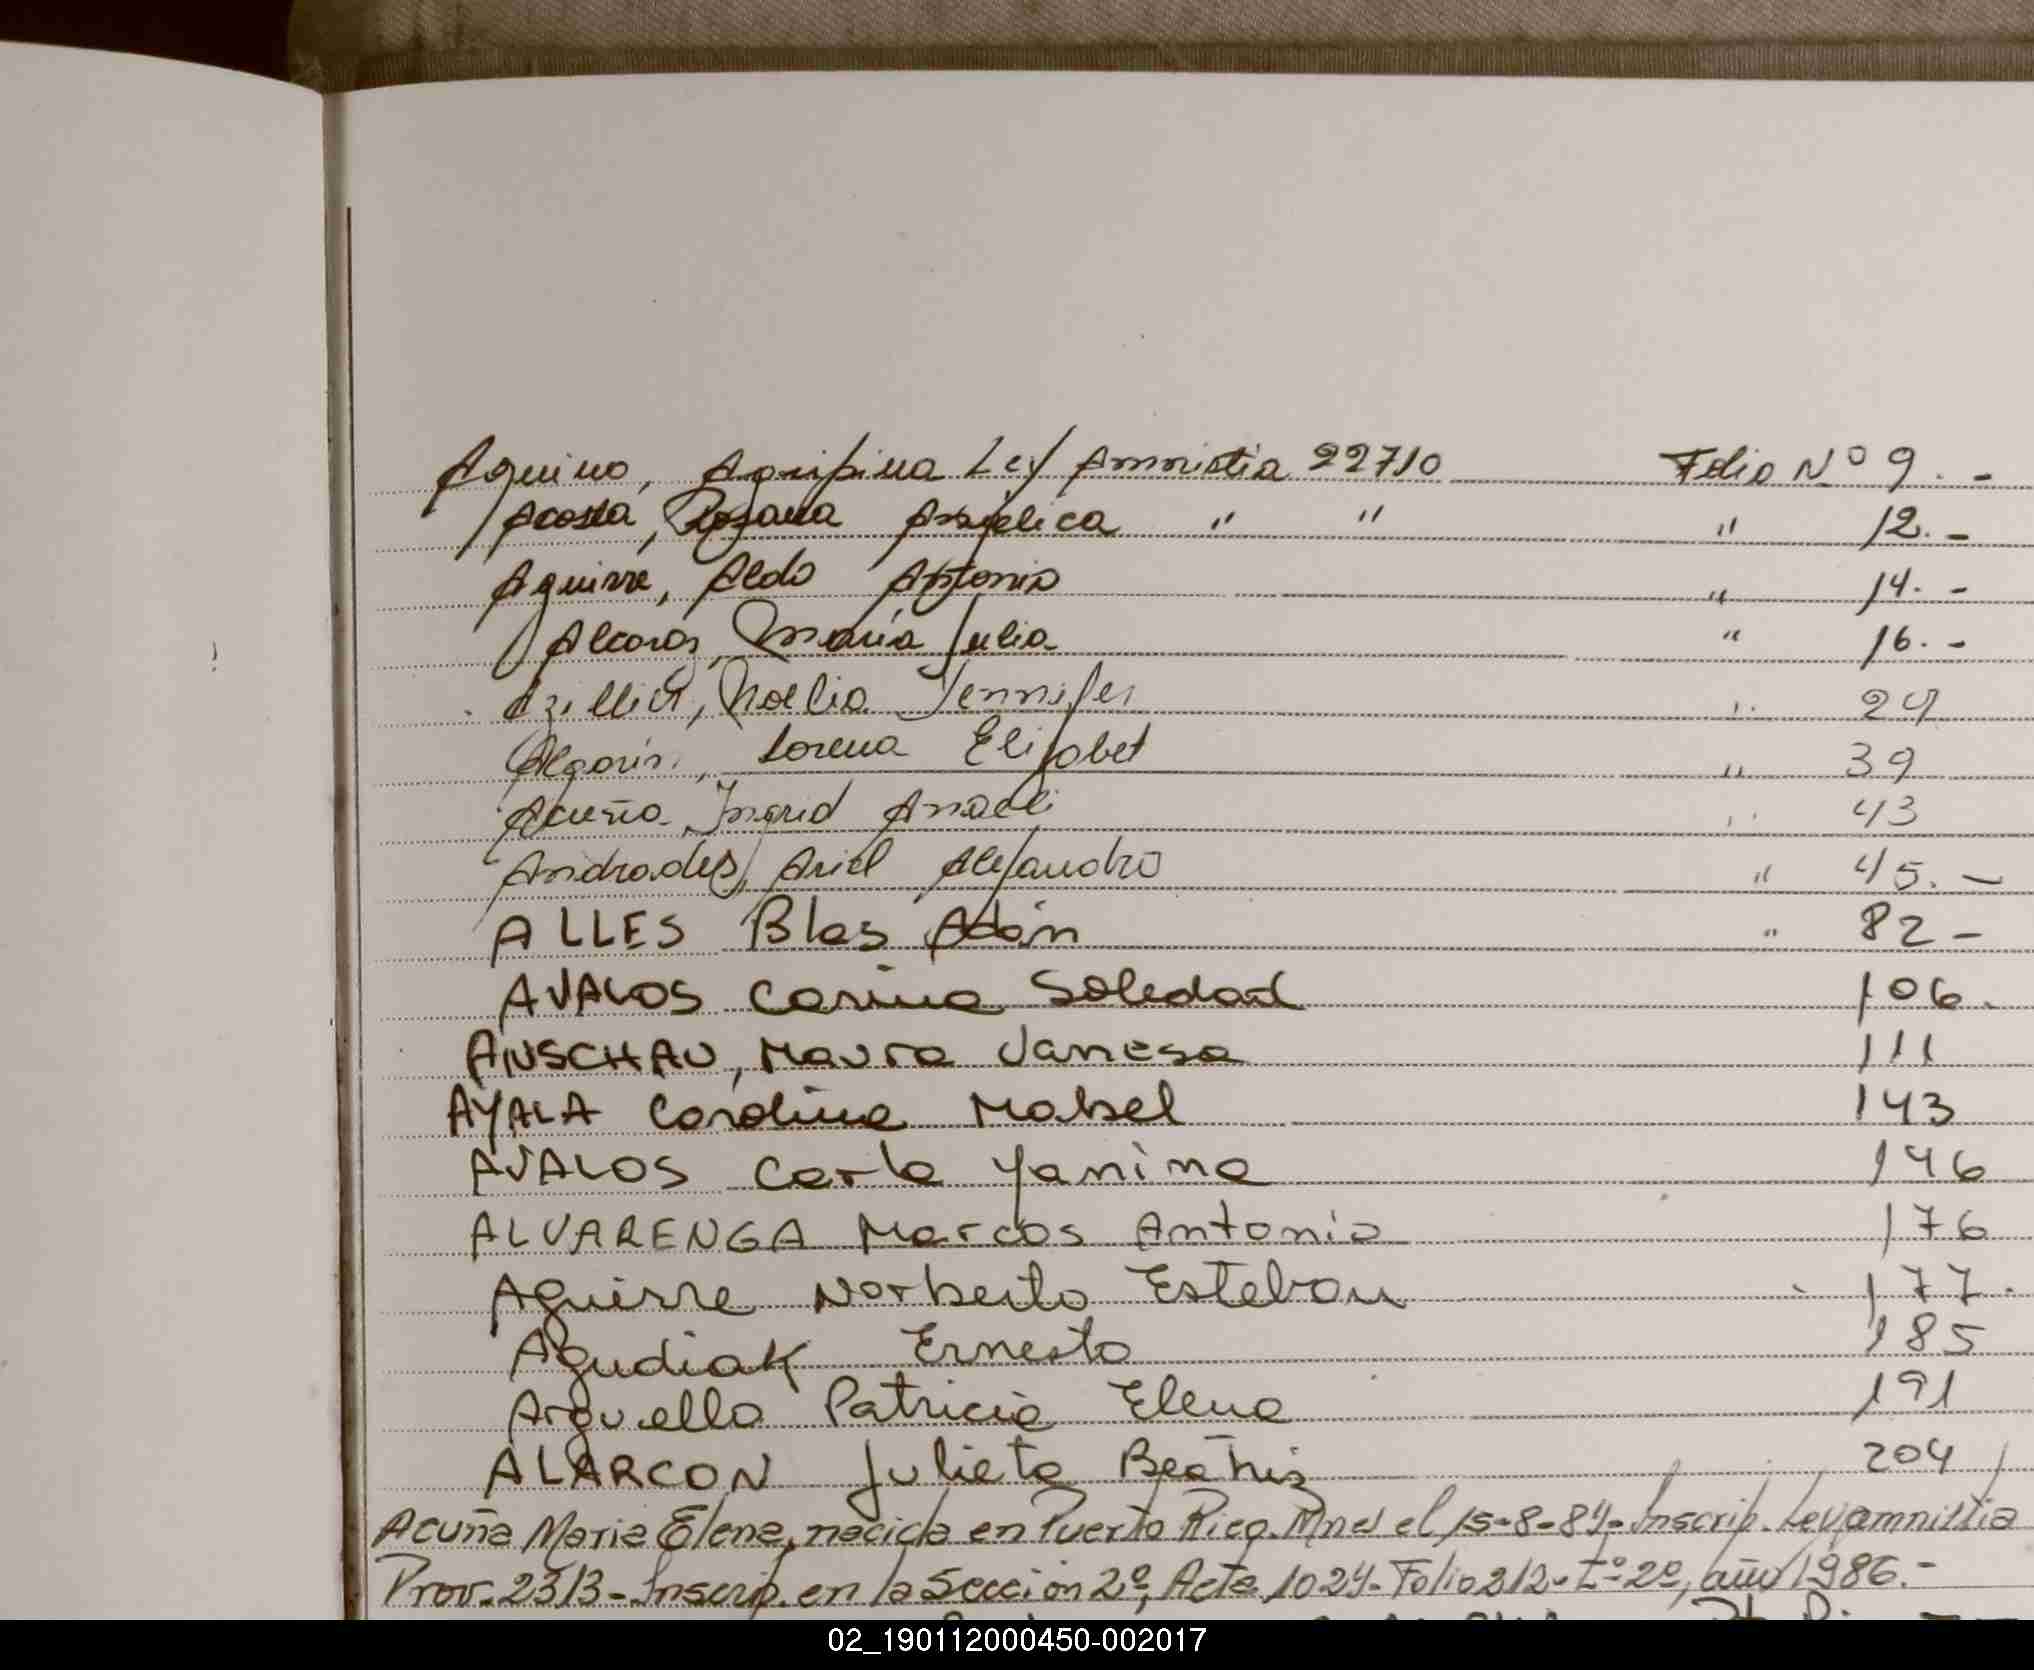 Aquino, Agripina Ley Amnistia 22710 Folio Nº 9.-
Acosta, Rosana Angelica " " " 12.-
Aguirre, Aldo Antonio " 14.-
Alcaraz, Maria Julia " 16.-
Noelia Jennifer " 24
Lorena Elisabet " 39
Acuña, Ingrid Anaeli " 43
Andrades, Ariel Alejandro " 45.-
ALLES Blas Adán " 82-
AVALOS Carina Soledad 106.
ANSCHAU, Maura Vanesa 111
AYALA Carolina Mabel 143
AVALOS Carla Yanina 146
ALVARENGA Marcos Antonio 176
Aguirre Norberto Esteban 177.
Agudiak Ernesto 185
Arguello Patricia Elena 191
ALARCON Julieta Beatriz 204
Acuña Maria Elena, nacida en Puerto Rico. Mnes el 15-8-84- Inscrip. Ley amnistia
Prov. 2313- Inscrip. en la Sección 2º, Acta 1024- Folio 212- Tº 2º, año 1986.-
02_190112000450-002017